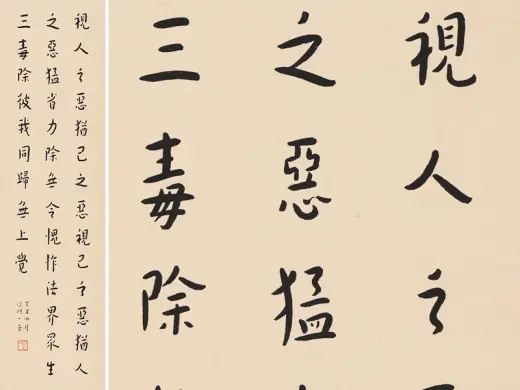 視人之惡猶己之惡視己之惡猶人
之惡猛省力除無令愧怍法界眾生
三毒除彼我同歸無上覺
視人之
之惡猛
三毒除